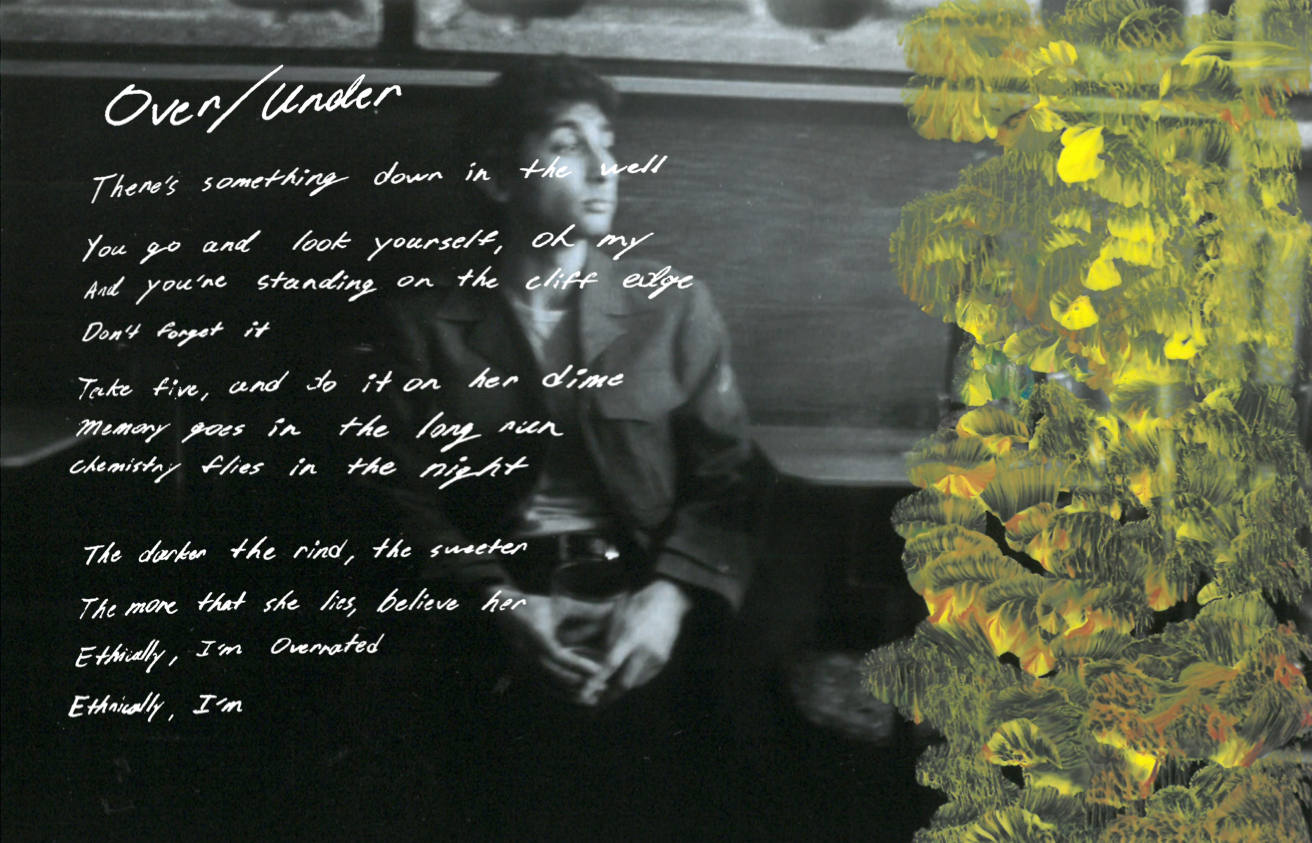 Over/Under
There's something down in the well
You go and look yourself, oh my
And you're standing on the cliff edge
Don't forget it
Take five, and do it on her dime
Memory goes in the long run
Chemistry flies in the night
The darker the rind, the sweeter
The more that she lies, believe her
Ethically, I'm Overrated
Ethnically, I'm